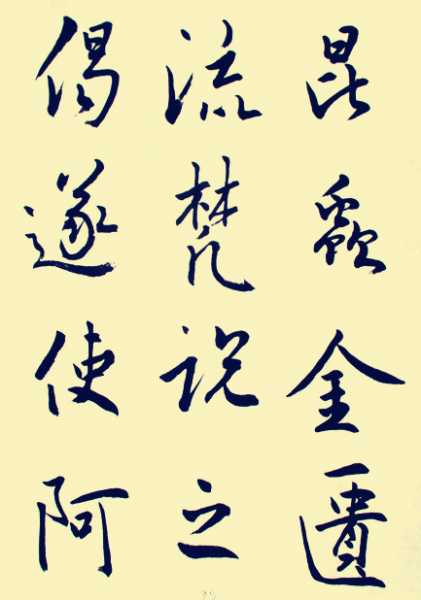 昆金匱
流梵説之
偈遂使阿